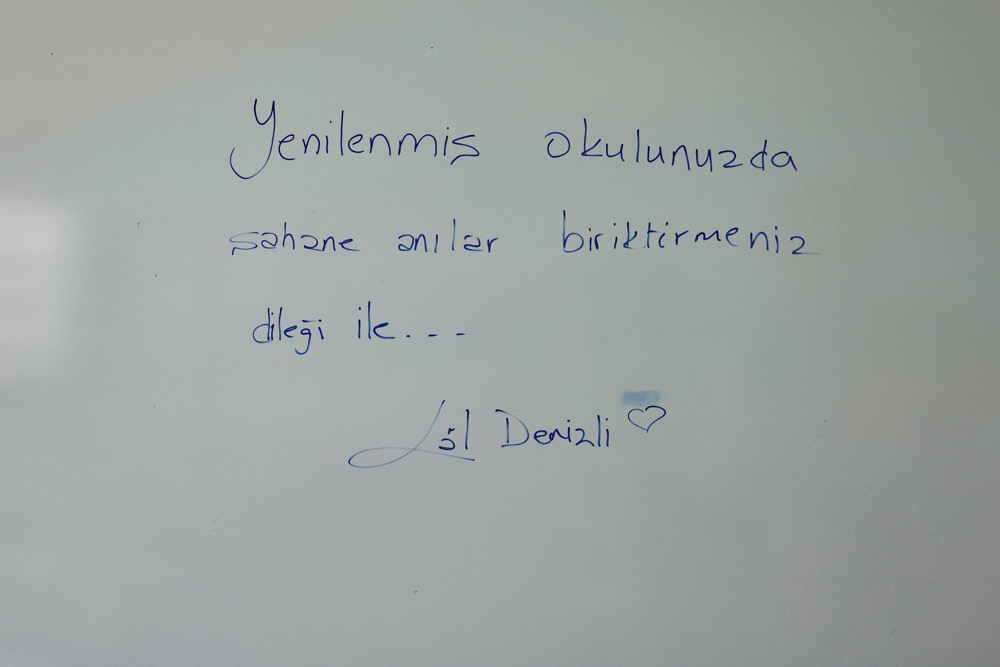 Yenilenmiş okulunuzda
şahane anılar biriktirmeniz
dileği ile...
Lâl Denizli ♡